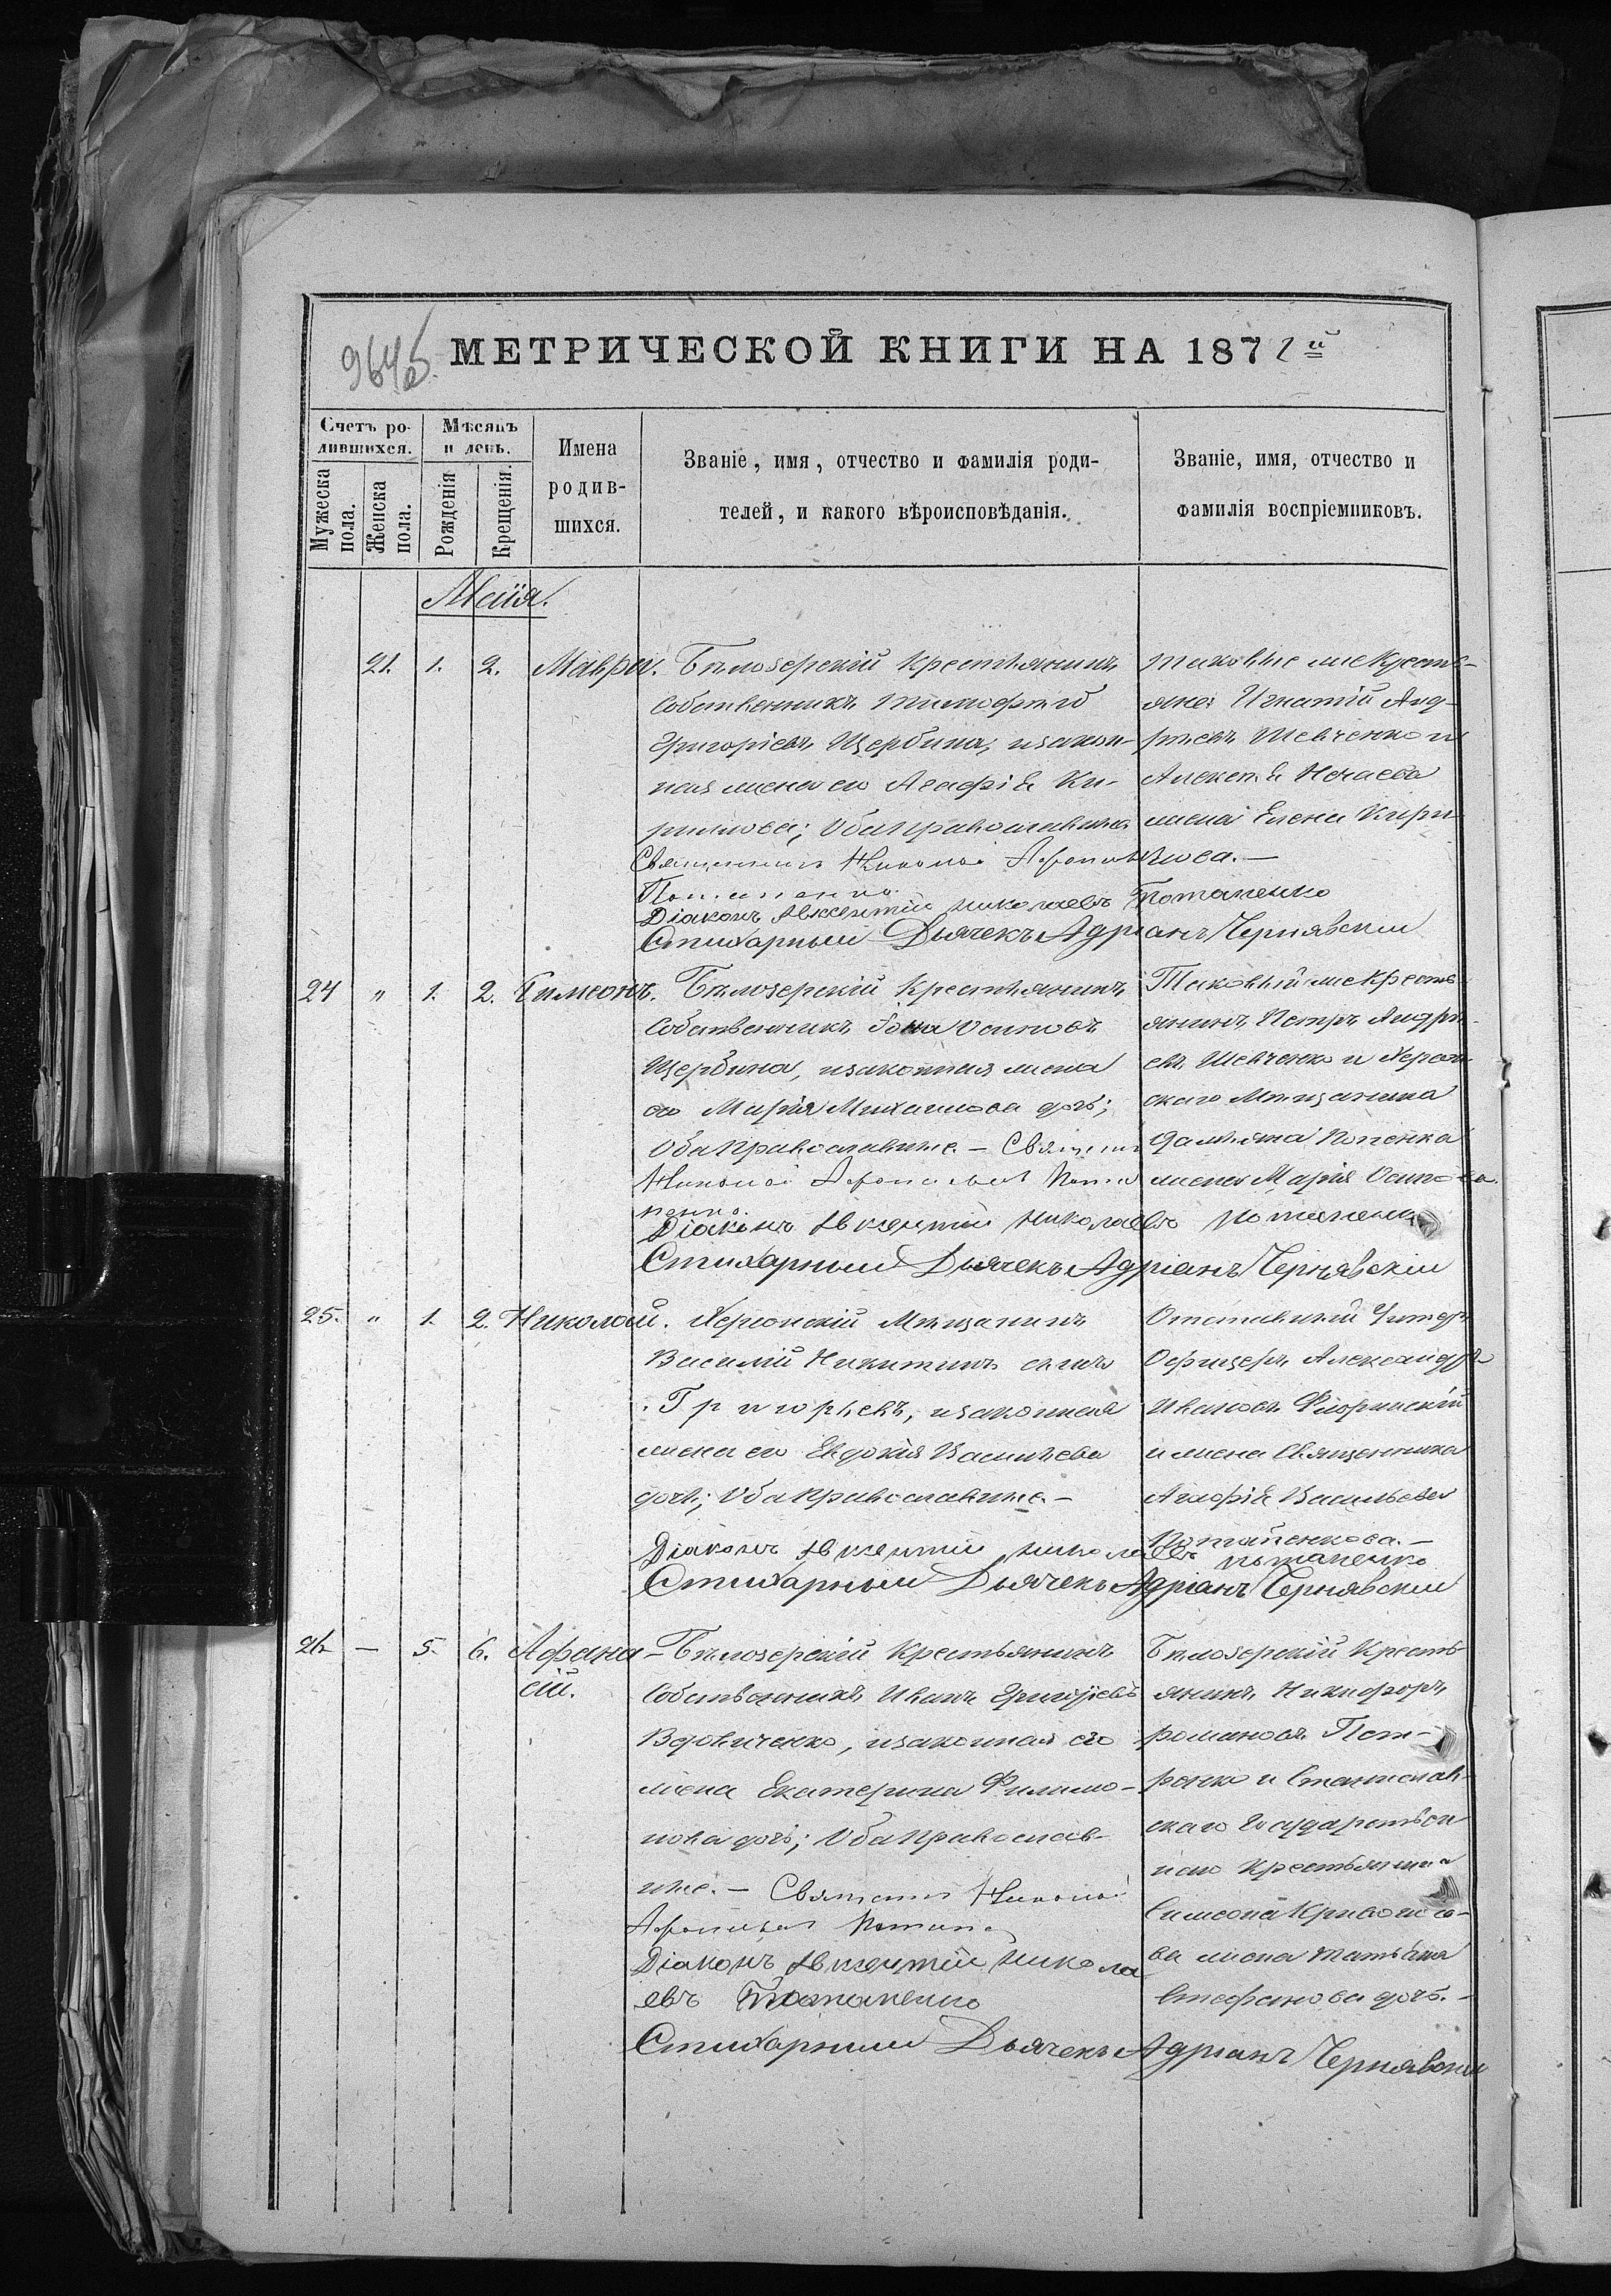 964б
МЕТРИЧЕСКОЙ КНИГИ НА 1871й
Счетъ ро-
лившихся.
Мужеска пола.
Женска пола.
Мѣсяцъ
и день.
Рожденія
Крещенія.
Имена
родив-
шихся.
Званіе, имя, отчество и фамилія роди-
телей, и какого вѣроисповѣданія.
Званіе, имя, отчество и
фамилія воспріемниковъ.
Маія.
21. 1. 2. Мавра.
Бѣлозерскій крестьянинъ
собственникъ Тимофѣй
Григорьевъ Щербина, изакон-
ная жена его Агафія Ки-
рилова; Оба Православные
Священникъ Николай
Діаконъ Авксентій Николаевъ Потапенко
Стихарный Дьячекъ Адріанъ Чернявский
таковые же Кресть-
яне: Игнатій Анд-
рѣевъ Шевченко и
Алексѣя Нечаева
жена Елена Кири-
лова.—
24 " 1. 2. Симеонъ.
Бѣлозерскій крестьянинъ
собственникъ Іона Осиповъ
Щербина, изаконная жена
его Марія Михаилова дочь;
Оба Православные. — Священ
Николай
Діаконъ Авксентій Николаевъ Потапенко
Стихарный Дьячекъ Адріанъ Чернявскій
Таковый же Кресть-
янинъ Петръ Андрѣ-
евъ Шевченко и Херсон-
скаго Мѣщанина
Даміана Попенка
жена Марія Осипова.
25. " 1. 2. Николай.
Херсонскій Мѣщанинъ
Василій Никитинъ сынъ
Григорьевъ, изаконная
жена его Евдокія Васильева
дочь; Оба Православные.—
Діаконъ Авксентій Николаевъ Потапенко
Стихарный Дьячекъ Адріанъ Чернявский
Отставный Унтеръ
Офицеръ Александръ
Ивановъ Флоринскій
и жена Священника
Агафія Васильева
Потапенкова.—
26 — 5. 6. Афана-
сій.
Бѣлозерскій Крестьянинъ
собственникъ Иванъ Григорьевъ
Вдовиченко, изаконная его
жена Екатерина Филимо-
нова дочь; Оба Православ-
ные. — Священникъ Николай
Діаконъ Авксентій Никола
евъ Потапенко
Стихарный Дьячекъ Адріанъ Чернявский
Бѣлозерскій Кресть-
янинъ Никифоръ
Романовъ Пет-
ренко и Станислав-
скаго Государствен
наго Крестьянина
Симеона Кривоносо-
ва жена Татьяна
Стефанова дочь.—